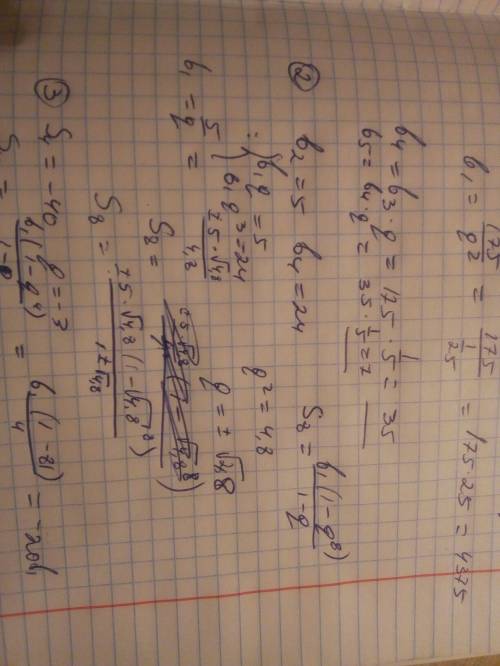 b₁ = 175/q² = 175/(1/25) = 175·25 = 4375
b₄ = b₃·q = 175·1/5 = 35
b₅ = b₄·q = 35·1/5 = 7
② b₂ = 5 b₄ = 24 S₈ = b₁(1−q⁸)/(1−q)
: { b₁q = 5
b₁q³ = 24
q² = 4,8
q = ±√4,8
b₁ = 5/q =
S₈ =
③ S₄ = −40 q = −3
b₁(1−q⁴)/(1−q) = b₁(1−81)/4 = −20b₁